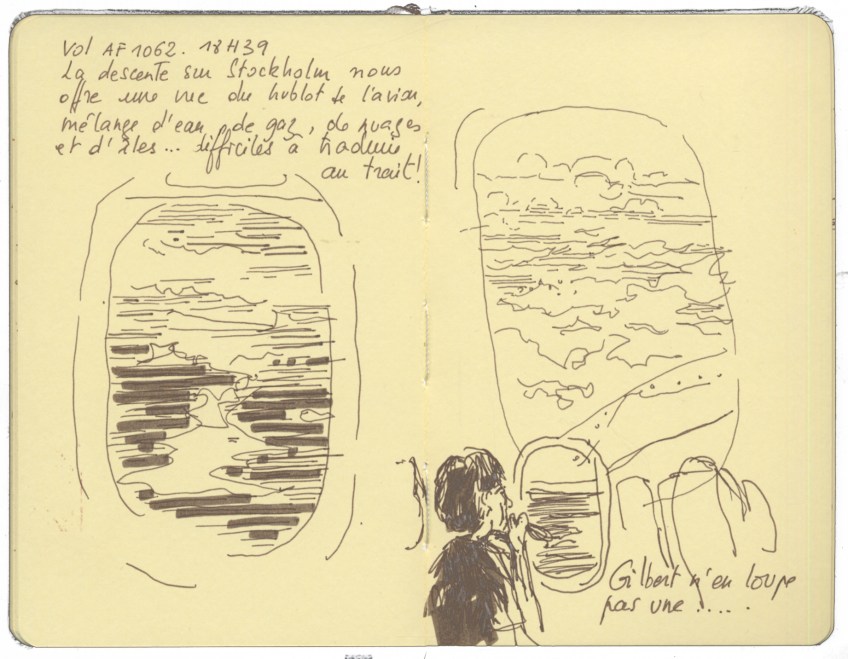 Vol AF 1062. 18H39
La descente sur Stockholm nous
offre une vue du hublot de l'avion,
mélange d'eau, de gaz, de nuages
et d'îles... difficiles à traduire
au trait!
Gilbert n'en loupe
pas une.....